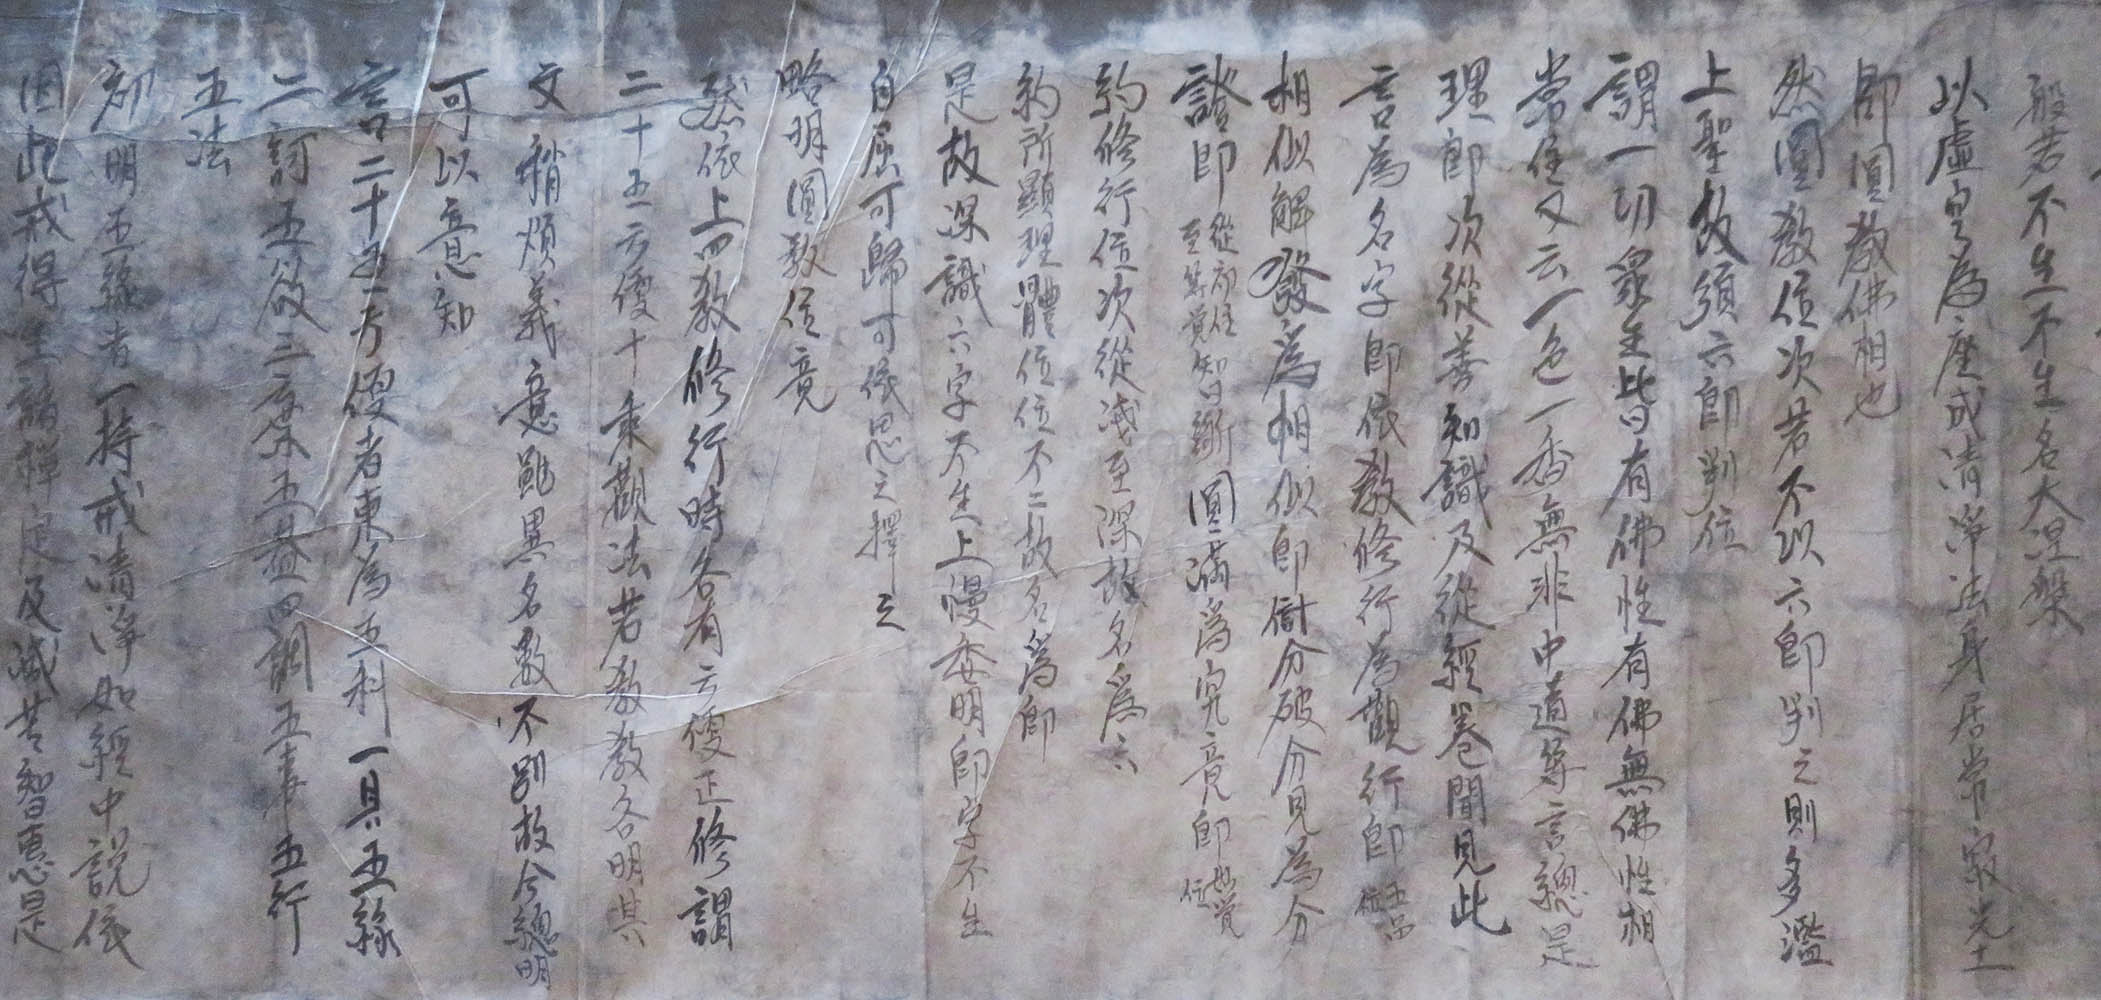 般若不生不生不生名大涅槃
以虛空為座成清淨法身居常寂光土
即圓教佛相也
然圓教位次若不以六即判之則多濫
上聖故須六即判位
謂一切衆生皆有佛性有佛無佛性相
常住又云一色一香無非中道等言總是
理即次從善知識及從經卷聞見此
言為名字即依教修行為觀行即五品位
相似解發為相似即分破分見為分
證即從初住至等覺智斷圓滿為究竟即妙覺位
約修行位次從淺至深故名為六
約所顯理體位位不二故名為即
是故深識六字不生上慢委明即字不生
自屈可歸可依思之擇之
略明圓教位竟
然依上四教修行時各有方便正修謂
二十五方便十乘觀法若教教各明其
文稍煩義意雖異名數不別故今總明
可以意知
言二十五方便者束為五科一具五緣
二訶五欲三棄五蓋四調五事五行
五法
初明五緣者一持戒清淨如經中說依
因此戒得生諸禪定及滅苦智惠是